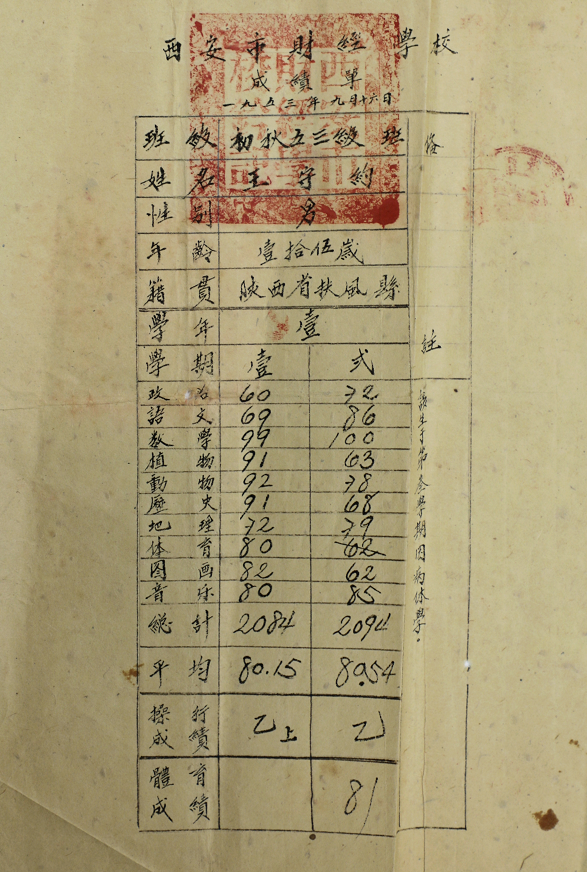 西安市財經學校
成績單
一九五三年九月十六日
班級 初秋五三級 班 俻
姓名 王守約
性別 男
年齡 壹拾伍歳
籍貫 陝西省扶風縣
學年 壹 註
學期 壹 弍
政治 60 72
語文 69 86
数學 99 100
植物 91 63
動物 92 78
歷史 91 68
地理 72 79
体育 80 62
图画 82 62
音乐 80 85
總計 2084 2094
平均 80.15 80.54
操行成績 乙上 乙
體育成績 81
該生于第叁學期因病休學.